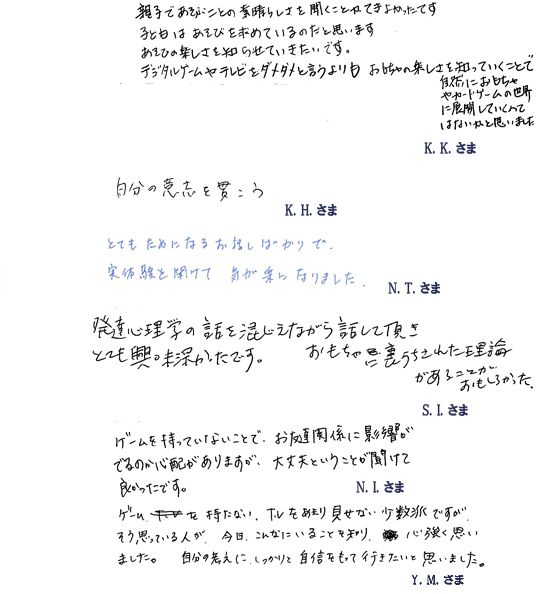 親子であそぶことの素晴らしさを聞くことができよかったです
子どもは あそびを求めているのだと思います
あそびの楽しさを知らせていきたいです。
デジタルゲームやテレビをダメダメと言うよりも おもちゃの楽しさを知っていくことで
自然におもちゃ
やカードゲームの世界
に展開していくのでは
はないかと思いました
K. K. さま
自分の意志を貫こう
K. H. さま
とても ためになる お話し ばかりで、
実体験を聞けて 気が楽になりました。
N. T. さま
発達心理学の話を混じえながら話して頂き
とても興味深かったです。 おもちゃに裏うちされた理論
があることが
おもしろかった。
S. I. さま
ゲームを持っていないことで、お友達関係に影響が
でるのか心配がありますが、大丈夫ということが聞けて
良かったです。
N. I. さま
ゲーム を 持たない、テレビをあまり見せない 少数派ですが、
そう思っている人が、今日、こんなにいることを知り、心強く思い
ました。 自分の考えに、しっかりと 自信をもって行きたいと 思いました。
Y. M. さま